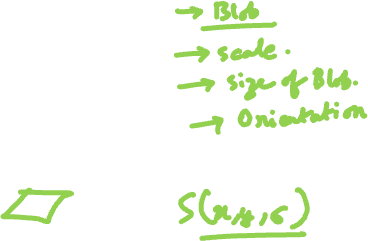 → Blob
→ scale.
→ size of Blob.
→ Orientation
S(x,y,σ)